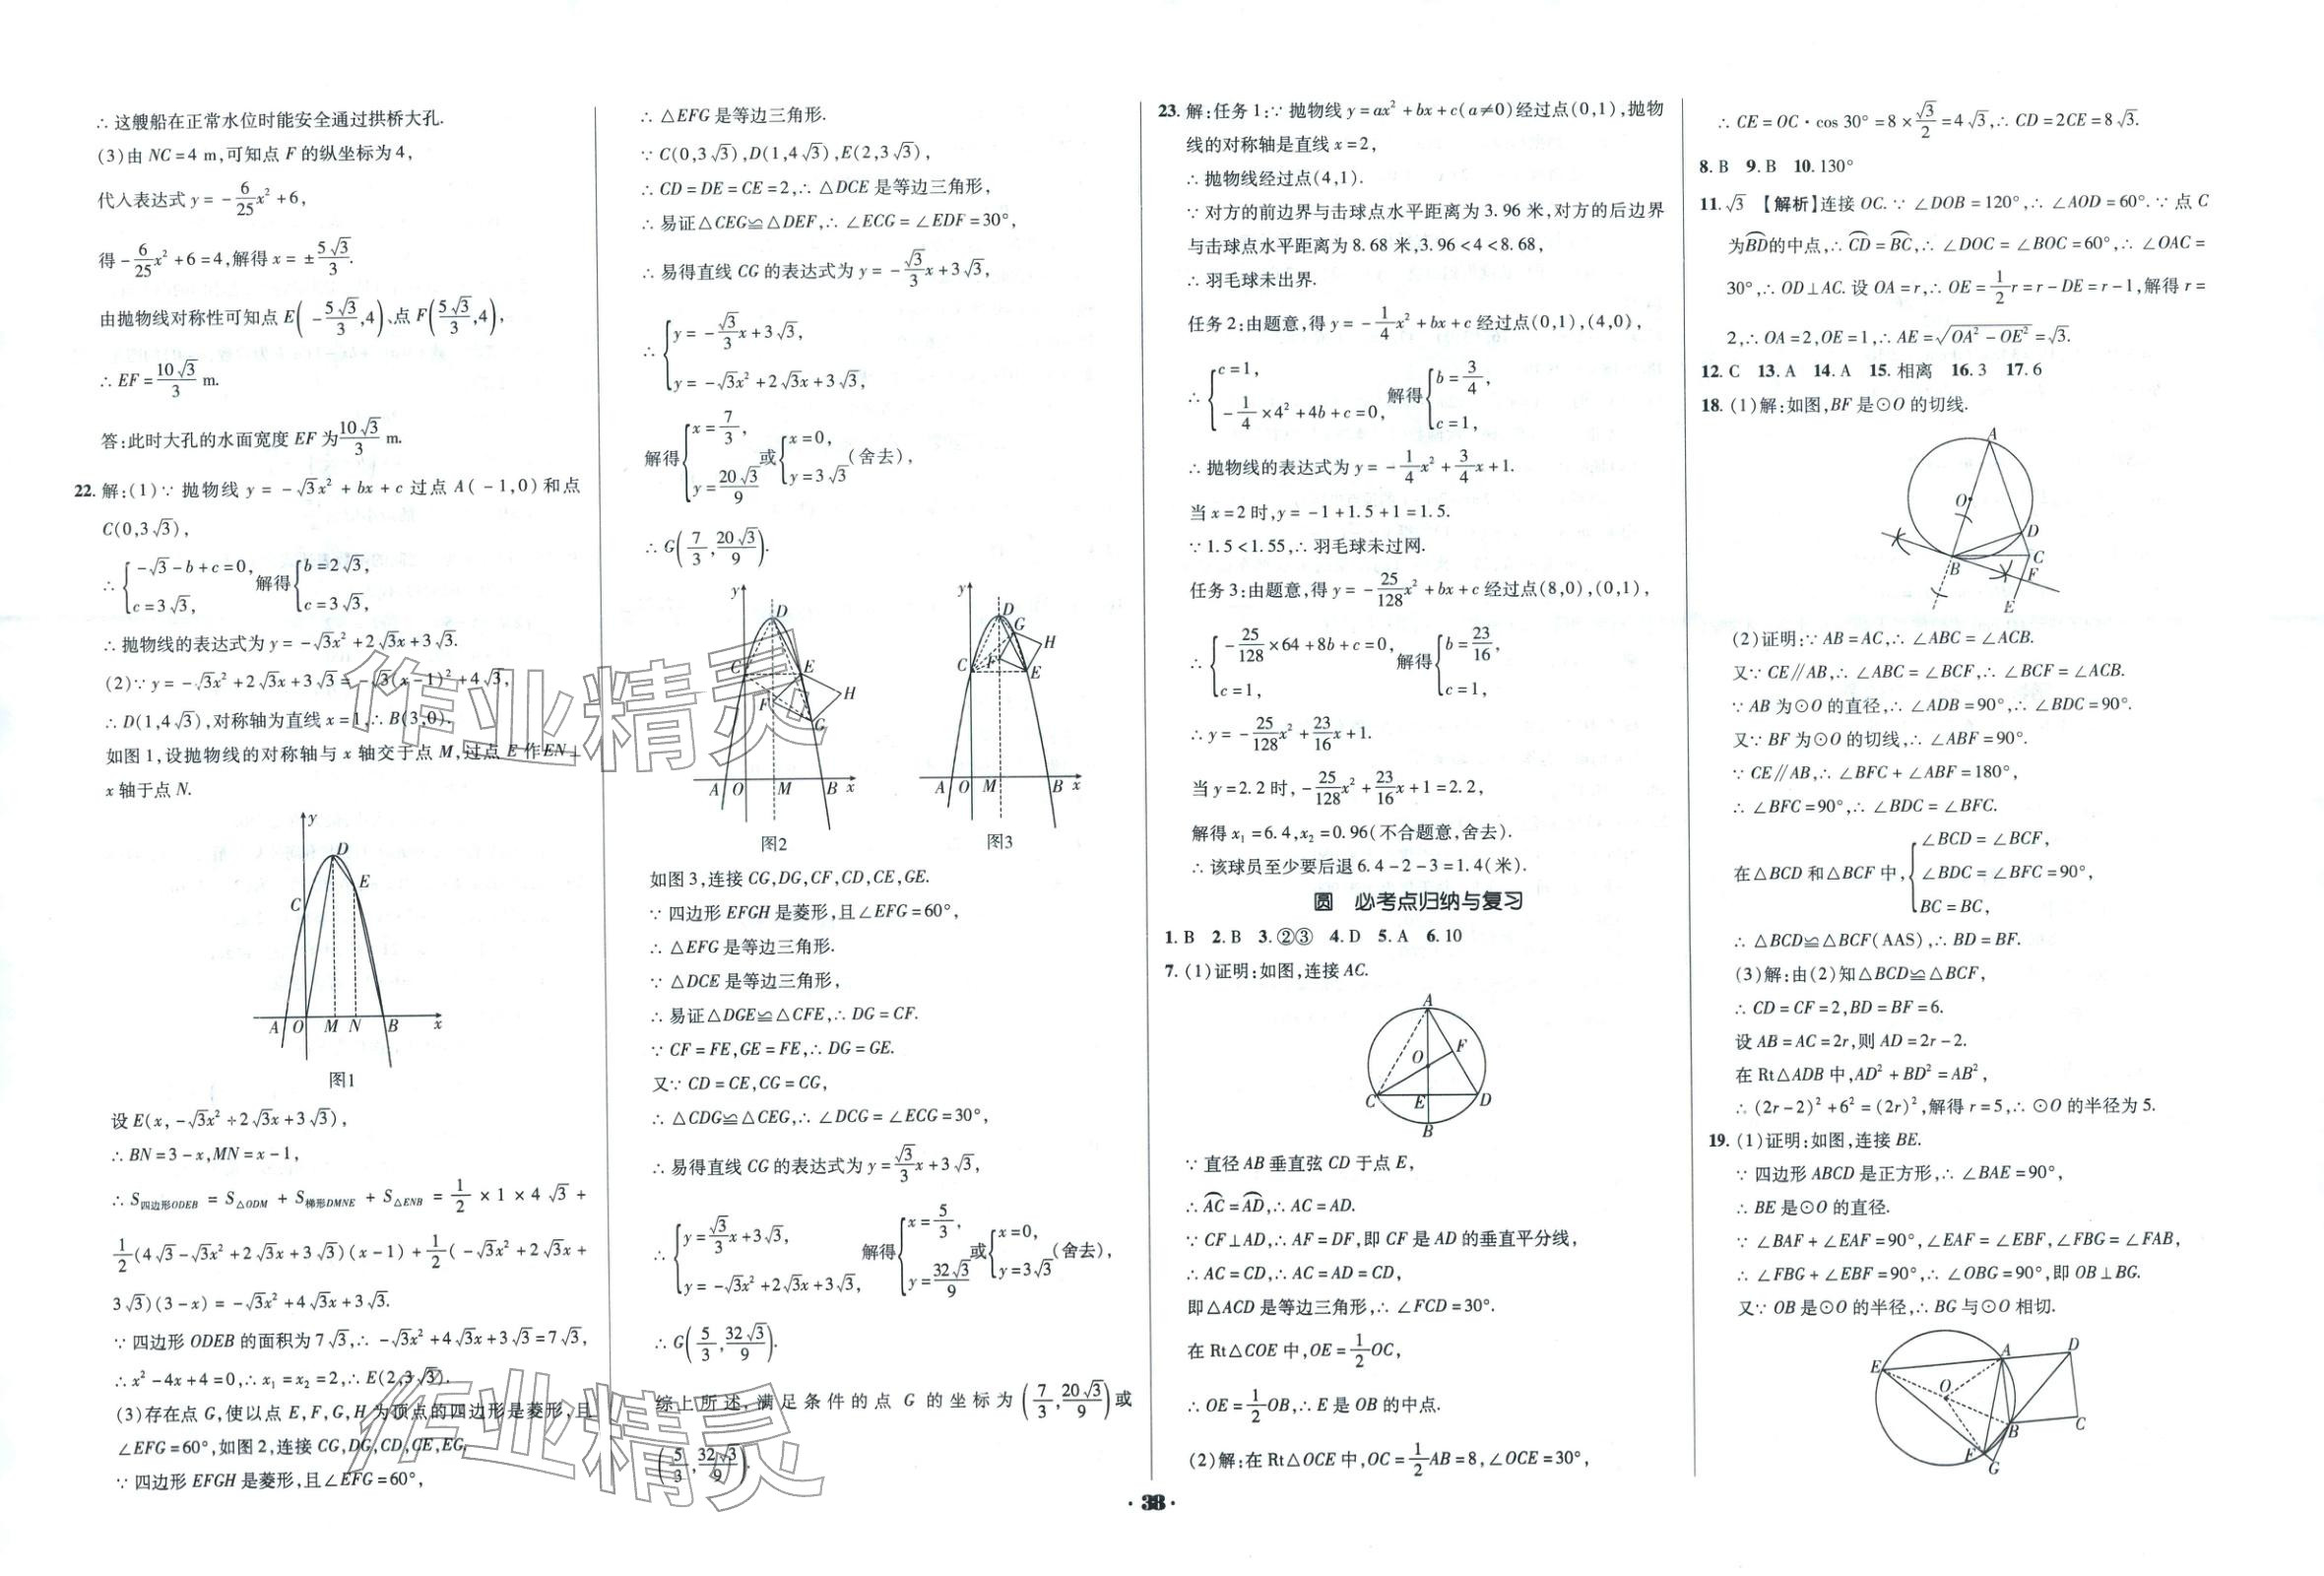 ∴ 这艘船在正常水位时能安全通过拱桥大孔.
(3)由 NC=4 m,可知点 F 的纵坐标为 4,
代入表达式 y=-6/25x²+6,
得-6/25x²+6=4,解得 x=±5√3/3.
由抛物线对称性可知点 E(-5√3/3,4)、点 F(5√3/3,4),
∴ EF=10√3/3 m.
答:此时大孔的水面宽度 EF 为10√3/3 m.
22. 解:(1)∵ 抛物线 y=-√3x²+bx+c 过点 A(-1,0)和点
C(0,3√3),
∴ {-√3-b+c=0, c=3√3, 解得{b=2√3, c=3√3,
∴ 抛物线的表达式为 y=-√3x²+2√3x+3√3.
(2)∵ y=-√3x²+2√3x+3√3=-√3(x-1)²+4√3,
∴ D(1,4√3),对称轴为直线 x=1,∴ B(3,0).
如图 1,设抛物线的对称轴与 x 轴交于点 M,过点 E 作 EN⊥
x 轴于点 N.
y
D
E
C
A O M N B x
图1
设 E(x,-√3x²÷2√3x+3√3),
∴ BN=3-x,MN=x-1,
∴ S四边形ODEB = S△ODM + S梯形DMNE + S△ENB = 1/2×1×4√3+
1/2(4√3-√3x²+2√3x+3√3)(x-1)+1/2(-√3x²+2√3x+
3√3)(3-x)=-√3x²+4√3x+3√3.
∵ 四边形 ODEB 的面积为 7√3,∴ -√3x²+4√3x+3√3=7√3,
∴ x²-4x+4=0,∴ x₁=x₂=2,∴ E(2,3√3).
(3)存在点 G,使以点 E,F,G,H 为顶点的四边形是菱形,且
∠EFG=60°,如图 2,连接 CG,DG,CD,CE,EG.
∵ 四边形 EFGH 是菱形,且∠EFG=60°,
∴ △EFG 是等边三角形.
∵ C(0,3√3),D(1,4√3),E(2,3√3),
∴ CD=DE=CE=2,∴ △DCE 是等边三角形,
∴ 易证△CEG≌△DEF,∴ ∠ECG=∠EDF=30°,
∴ 易得直线 CG 的表达式为 y=-√3/3x+3√3,
∴ {y=-√3/3x+3√3, y=-√3x²+2√3x+3√3,
解得{x=7/3, y=20√3/9 或{x=0, y=3√3(舍去),
∴ G(7/3,20√3/9).
y
D
C E
H
F
G
A O M B x
图2
y
D
G
H
C F E
A O M B x
图3
如图 3,连接 CG,DG,CF,CD,CE,GE.
∵ 四边形 EFGH 是菱形,且∠EFG=60°,
∴ △EFG 是等边三角形.
∵ △DCE 是等边三角形,
∴ 易证△DGE≌△CFE,∴ DG=CF.
∵ CF=FE,GE=FE,∴ DG=GE.
又∵ CD=CE,CG=CG,
∴ △CDG≌△CEG,∴ ∠DCG=∠ECG=30°,
∴ 易得直线 CG 的表达式为 y=√3/3x+3√3,
∴ {y=√3/3x+3√3, y=-√3x²+2√3x+3√3, 解得{x=5/3, y=32√3/9 或{x=0, y=3√3(舍去),
∴ G(5/3,32√3/9).
综上所述,满足条件的点 G 的坐标为(7/3,20√3/9)或
(5/3,32√3/9).
23. 解:任务 1:∵ 抛物线 y=ax²+bx+c(a≠0)经过点(0,1),抛物
线的对称轴是直线 x=2,
∴ 抛物线经过点(4,1).
∵ 对方的前边界与击球点水平距离为 3.96 米,对方的后边界
与击球点水平距离为 8.68 米,3.96<4<8.68,
∴ 羽毛球未出界.
任务 2:由题意,得 y=-1/4x²+bx+c 经过点(0,1),(4,0),
∴ {c=1, -1/4×4²+4b+c=0, 解得{b=3/4, c=1,
∴ 抛物线的表达式为 y=-1/4x²+3/4x+1.
当 x=2 时,y=-1+1.5+1=1.5.
∵ 1.5<1.55,∴ 羽毛球未过网.
任务 3:由题意,得 y=-25/128x²+bx+c 经过点(8,0),(0,1),
∴ {-25/128×64+8b+c=0, c=1, 解得{b=23/16, c=1,
∴ y=-25/128x²+23/16x+1.
当 y=2.2 时,-25/128x²+23/16x+1=2.2,
解得 x₁=6.4,x₂=0.96(不合题意,舍去).
∴ 该球员至少要后退 6.4-2-3=1.4(米).
圆 必考点归纳与复习
1. B 2. B 3. ②③ 4. D 5. A 6. 10
7. (1)证明:如图,连接 AC.
A
O F
C E D
B
∵ 直径 AB 垂直弦 CD 于点 E,
∴ A͡C=A͡D,∴ AC=AD.
∵ CF⊥AD,∴ AF=DF,即 CF 是 AD 的垂直平分线,
∴ AC=CD,∴ AC=AD=CD,
即△ACD 是等边三角形,∴ ∠FCD=30°.
在 Rt△COE 中,OE=1/2OC,
∴ OE=1/2OB,∴ E 是 OB 的中点.
(2)解:在 Rt△OCE 中,OC=1/2AB=8,∠OCE=30°,
∴ CE=OC·cos 30°=8×√3/2=4√3,∴ CD=2CE=8√3.
8. B 9. B 10. 130°
11. √3 【解析】连接 OC.∵ ∠DOB=120°,∴ ∠AOD=60°.∵ 点 C
为B͡D的中点,∴ C͡D=B͡C,∴ ∠DOC=∠BOC=60°,∴ ∠OAC=
30°,∴ OD⊥AC.设 OA=r,∴ OE=1/2r=r-DE=r-1,解得 r=
2,∴ OA=2,OE=1,∴ AE=√(OA²-OE²)=√3.
12. C 13. A 14. A 15. 相离 16. 3 17. 6
18. (1)解:如图,BF 是⊙O 的切线.
A
O
D
C
B F
E
(2)证明:∵ AB=AC,∴ ∠ABC=∠ACB.
又∵ CE∥AB,∴ ∠ABC=∠BCF,∴ ∠BCF=∠ACB.
∵ AB 为⊙O 的直径,∴ ∠ADB=90°,∴ ∠BDC=90°.
又∵ BF 为⊙O 的切线,∴ ∠ABF=90°.
∵ CE∥AB,∴ ∠BFC+∠ABF=180°,
∴ ∠BFC=90°,∴ ∠BDC=∠BFC.
在△BCD 和△BCF 中,{∠BCD=∠BCF, ∠BDC=∠BFC=90°, BC=BC,
∴ △BCD≌△BCF(AAS),∴ BD=BF.
(3)解:由(2)知△BCD≌△BCF,
∴ CD=CF=2,BD=BF=6.
设 AB=AC=2r,则 AD=2r-2.
在 Rt△ADB 中,AD²+BD²=AB²,
∴ (2r-2)²+6²=(2r)²,解得 r=5,∴ ⊙O 的半径为 5.
19. (1)证明:如图,连接 BE.
∵ 四边形 ABCD 是正方形,∴ ∠BAE=90°,
∴ BE 是⊙O 的直径.
∵ ∠BAF+∠EAF=90°,∠EAF=∠EBF,∠FBG=∠FAB,
∴ ∠FBG+∠EBF=90°,∴ ∠OBG=90°,即 OB⊥BG.
又∵ OB 是⊙O 的半径,∴ BG 与⊙O 相切.
E A D
O
B C
F G
·38·
作业精灵
作业精灵